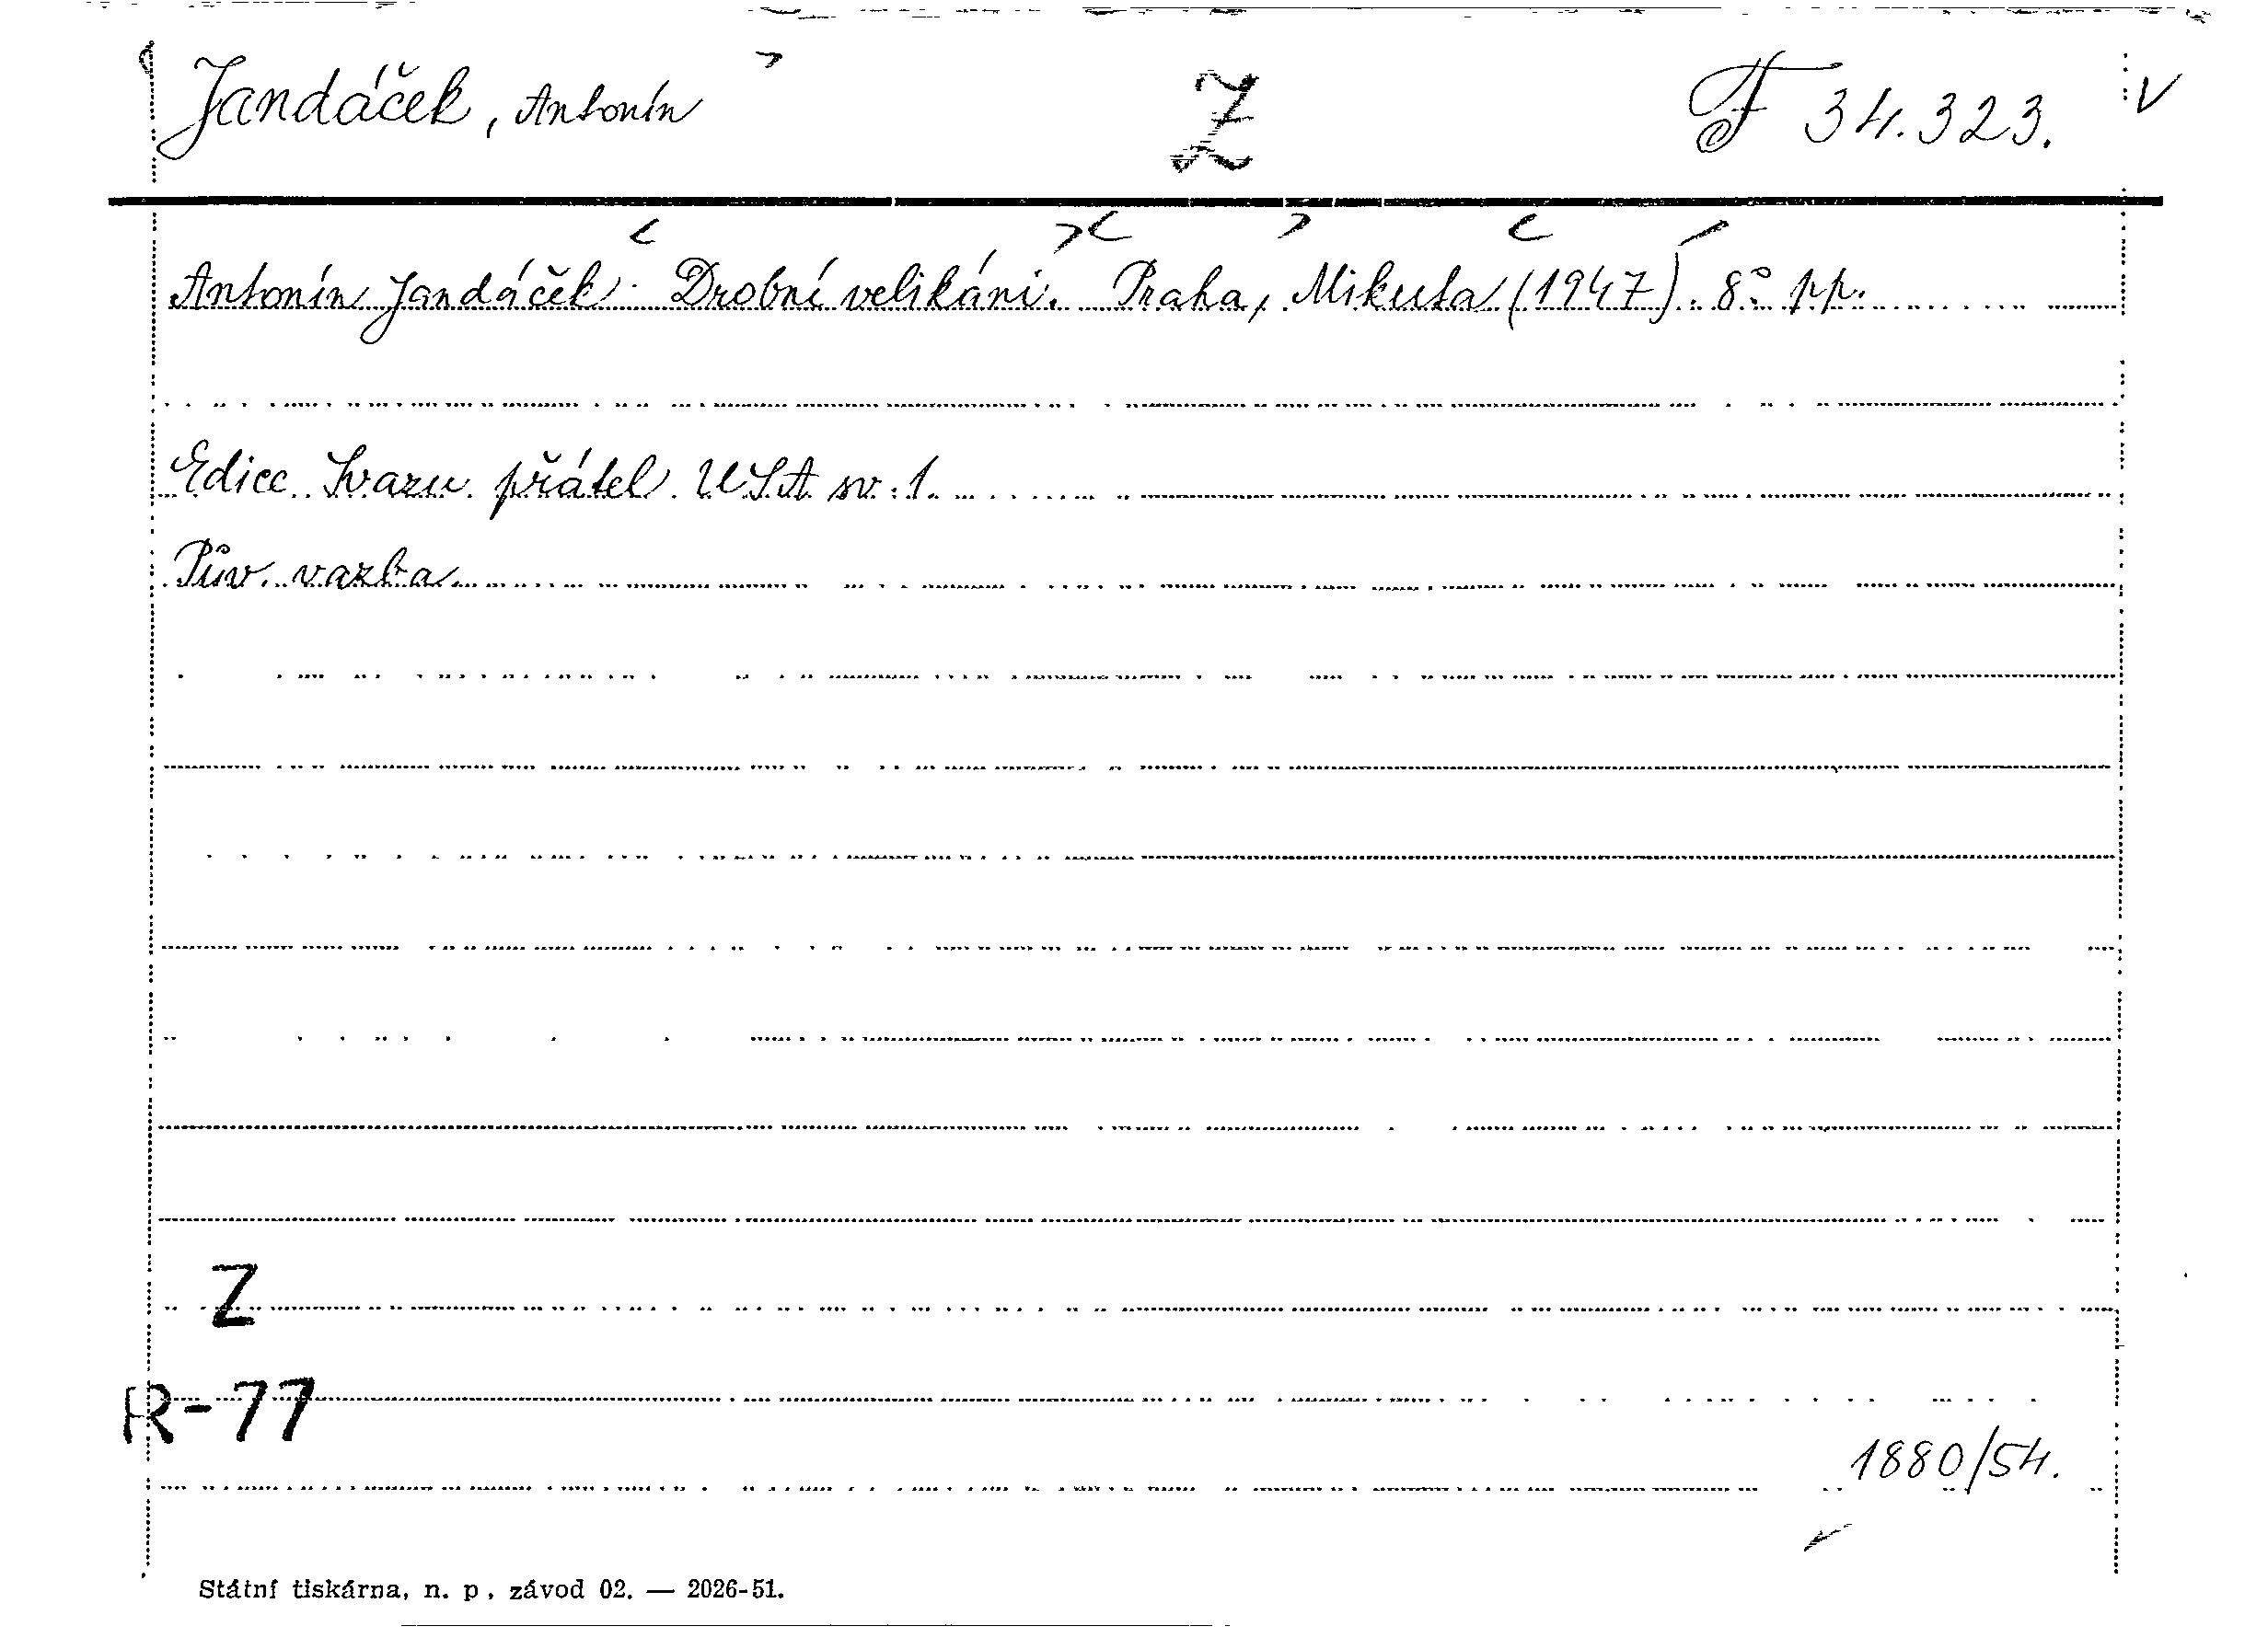 Jandáček, Antonín Z F 34.323. V
Antonín Jandáček: Drobní velikáni. Praha, Mikuta (1947). 8° pp.
Edice Svazu přátel USA sv. 1.
Pův. vazba
Z
R-77
1880/54.
Státní tiskárna, n. p., závod 02. — 2026-51.